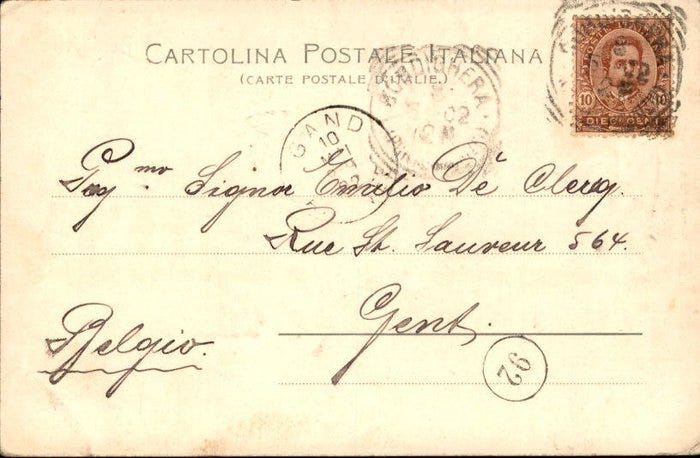 CARTOLINA POSTALE ITALIANA
(CARTE POSTALE D'ITALIE.)
BORDIGHERA
02
GAND
10
10 10
DIECI CENT
Signor Emilio De Clerq.
Rue St. Sauveur 564.
Gent.
Belgio.
92